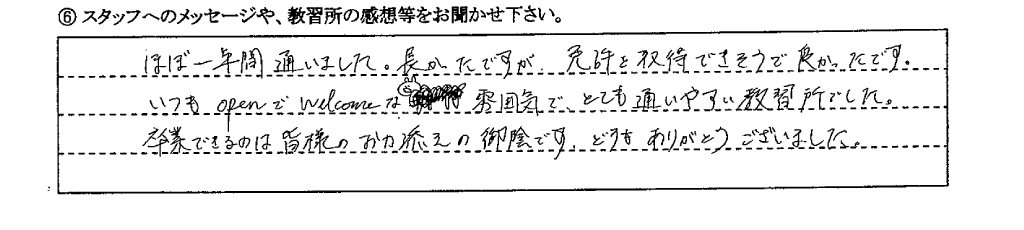 ⑥ スタッフへのメッセージや、教習所の感想等をお聞かせ下さい。
ほぼ一年間通いました。長かったですが、免許を取得できそうで良かったです。
いつもopenでwelcomeな雰囲気で、とても通いやすい教習所でした。
卒業できるのは皆様のお力添えの御陰です、どうもありがとうございました。